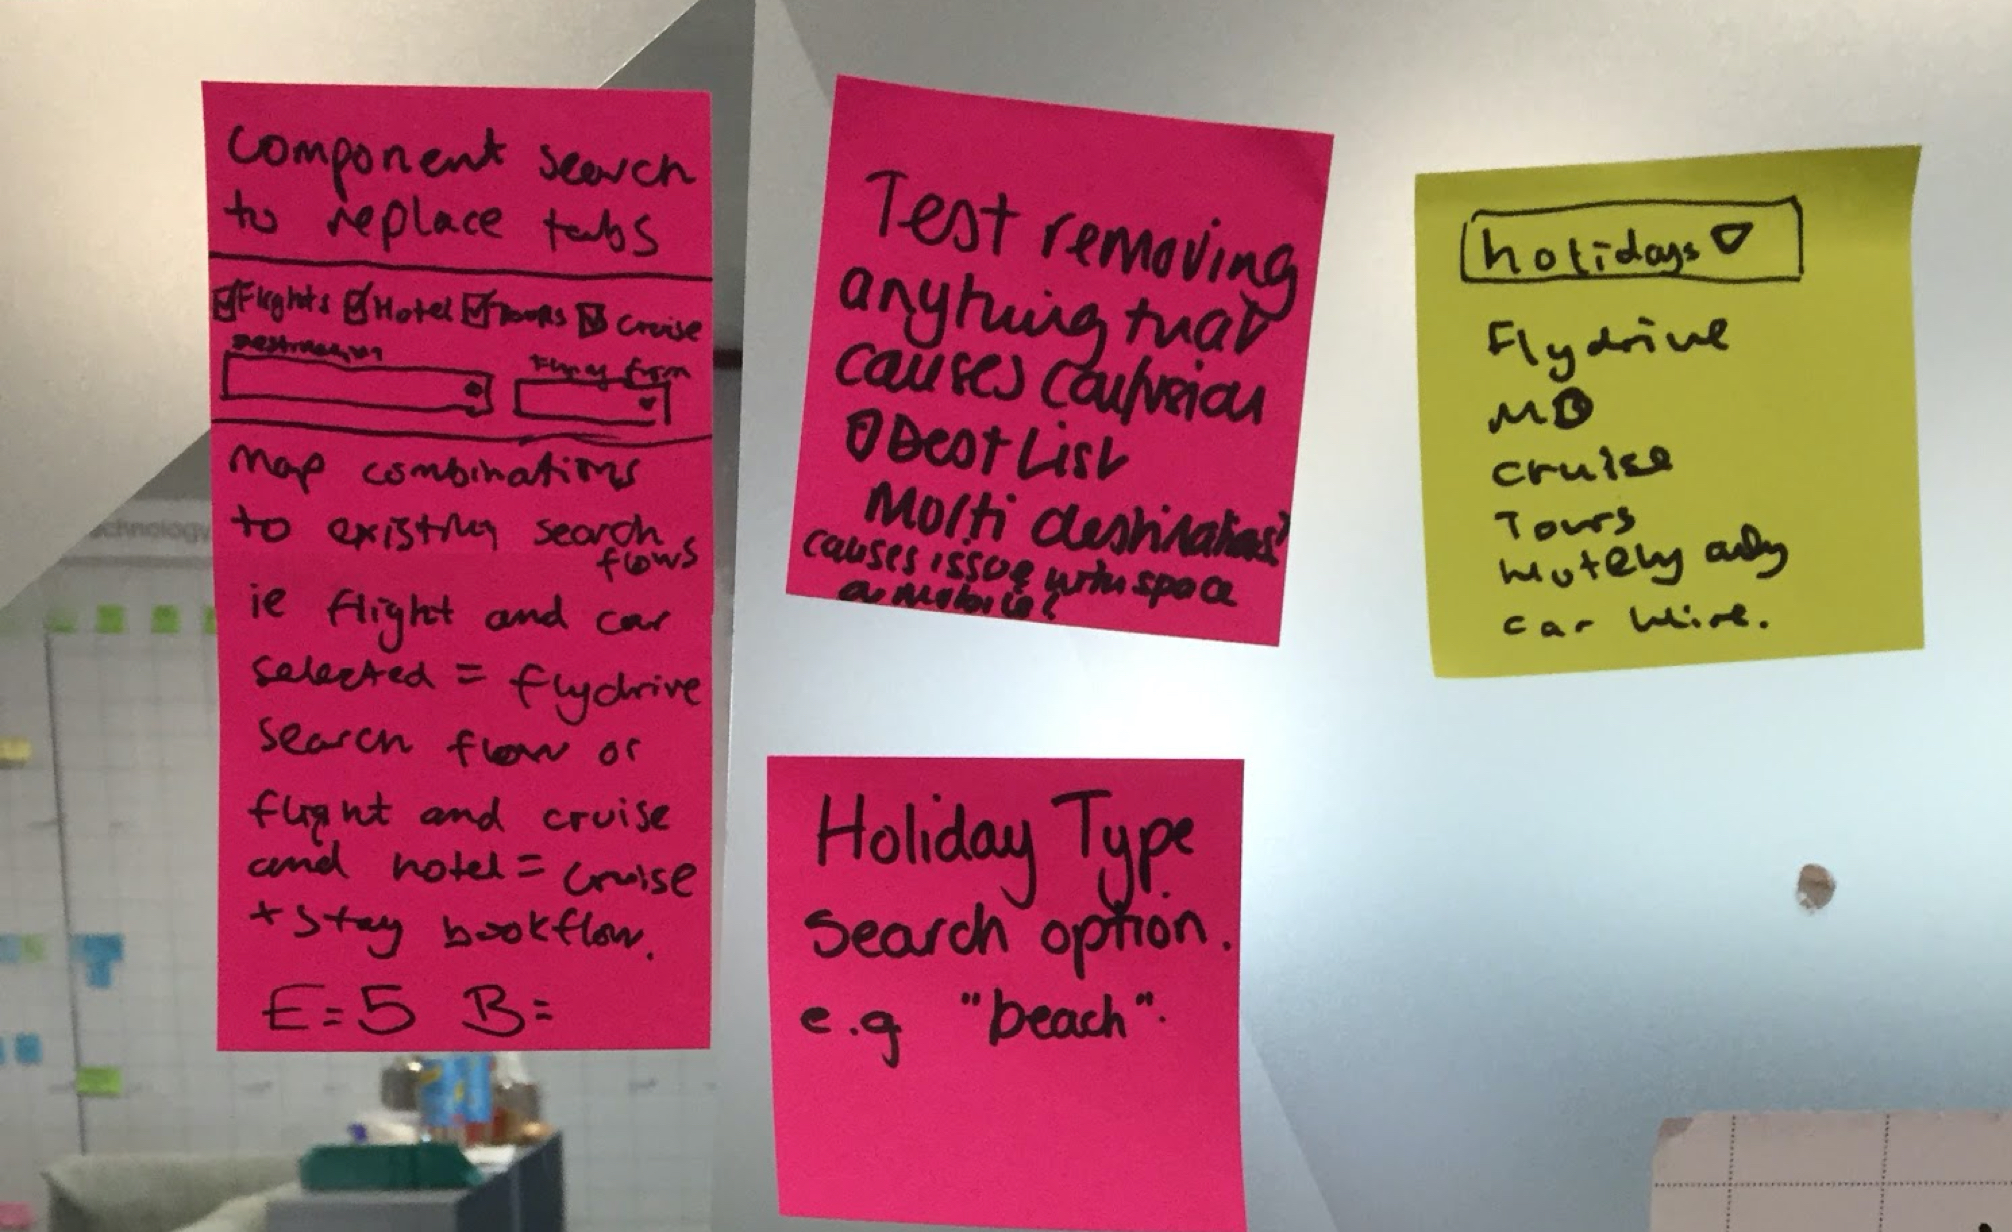 Component search
to replace tabs
Flights Hotel Tours Cruise
Destination
Flying from
Map combinations
to existing search
flows
ie flight and car
selected = flydrive
search flow or
flight and cruise
and hotel = cruise
+ stay bookflow.
E=5 B=
Test removing
anything that
causes confusion
Dest List
Molti destinations?
causes issue with space
on mobile?
Holiday Type
search option.
e.g "beach".
holidays
Flydrive
MD
cruise
Tours
only
car hire.
chnology